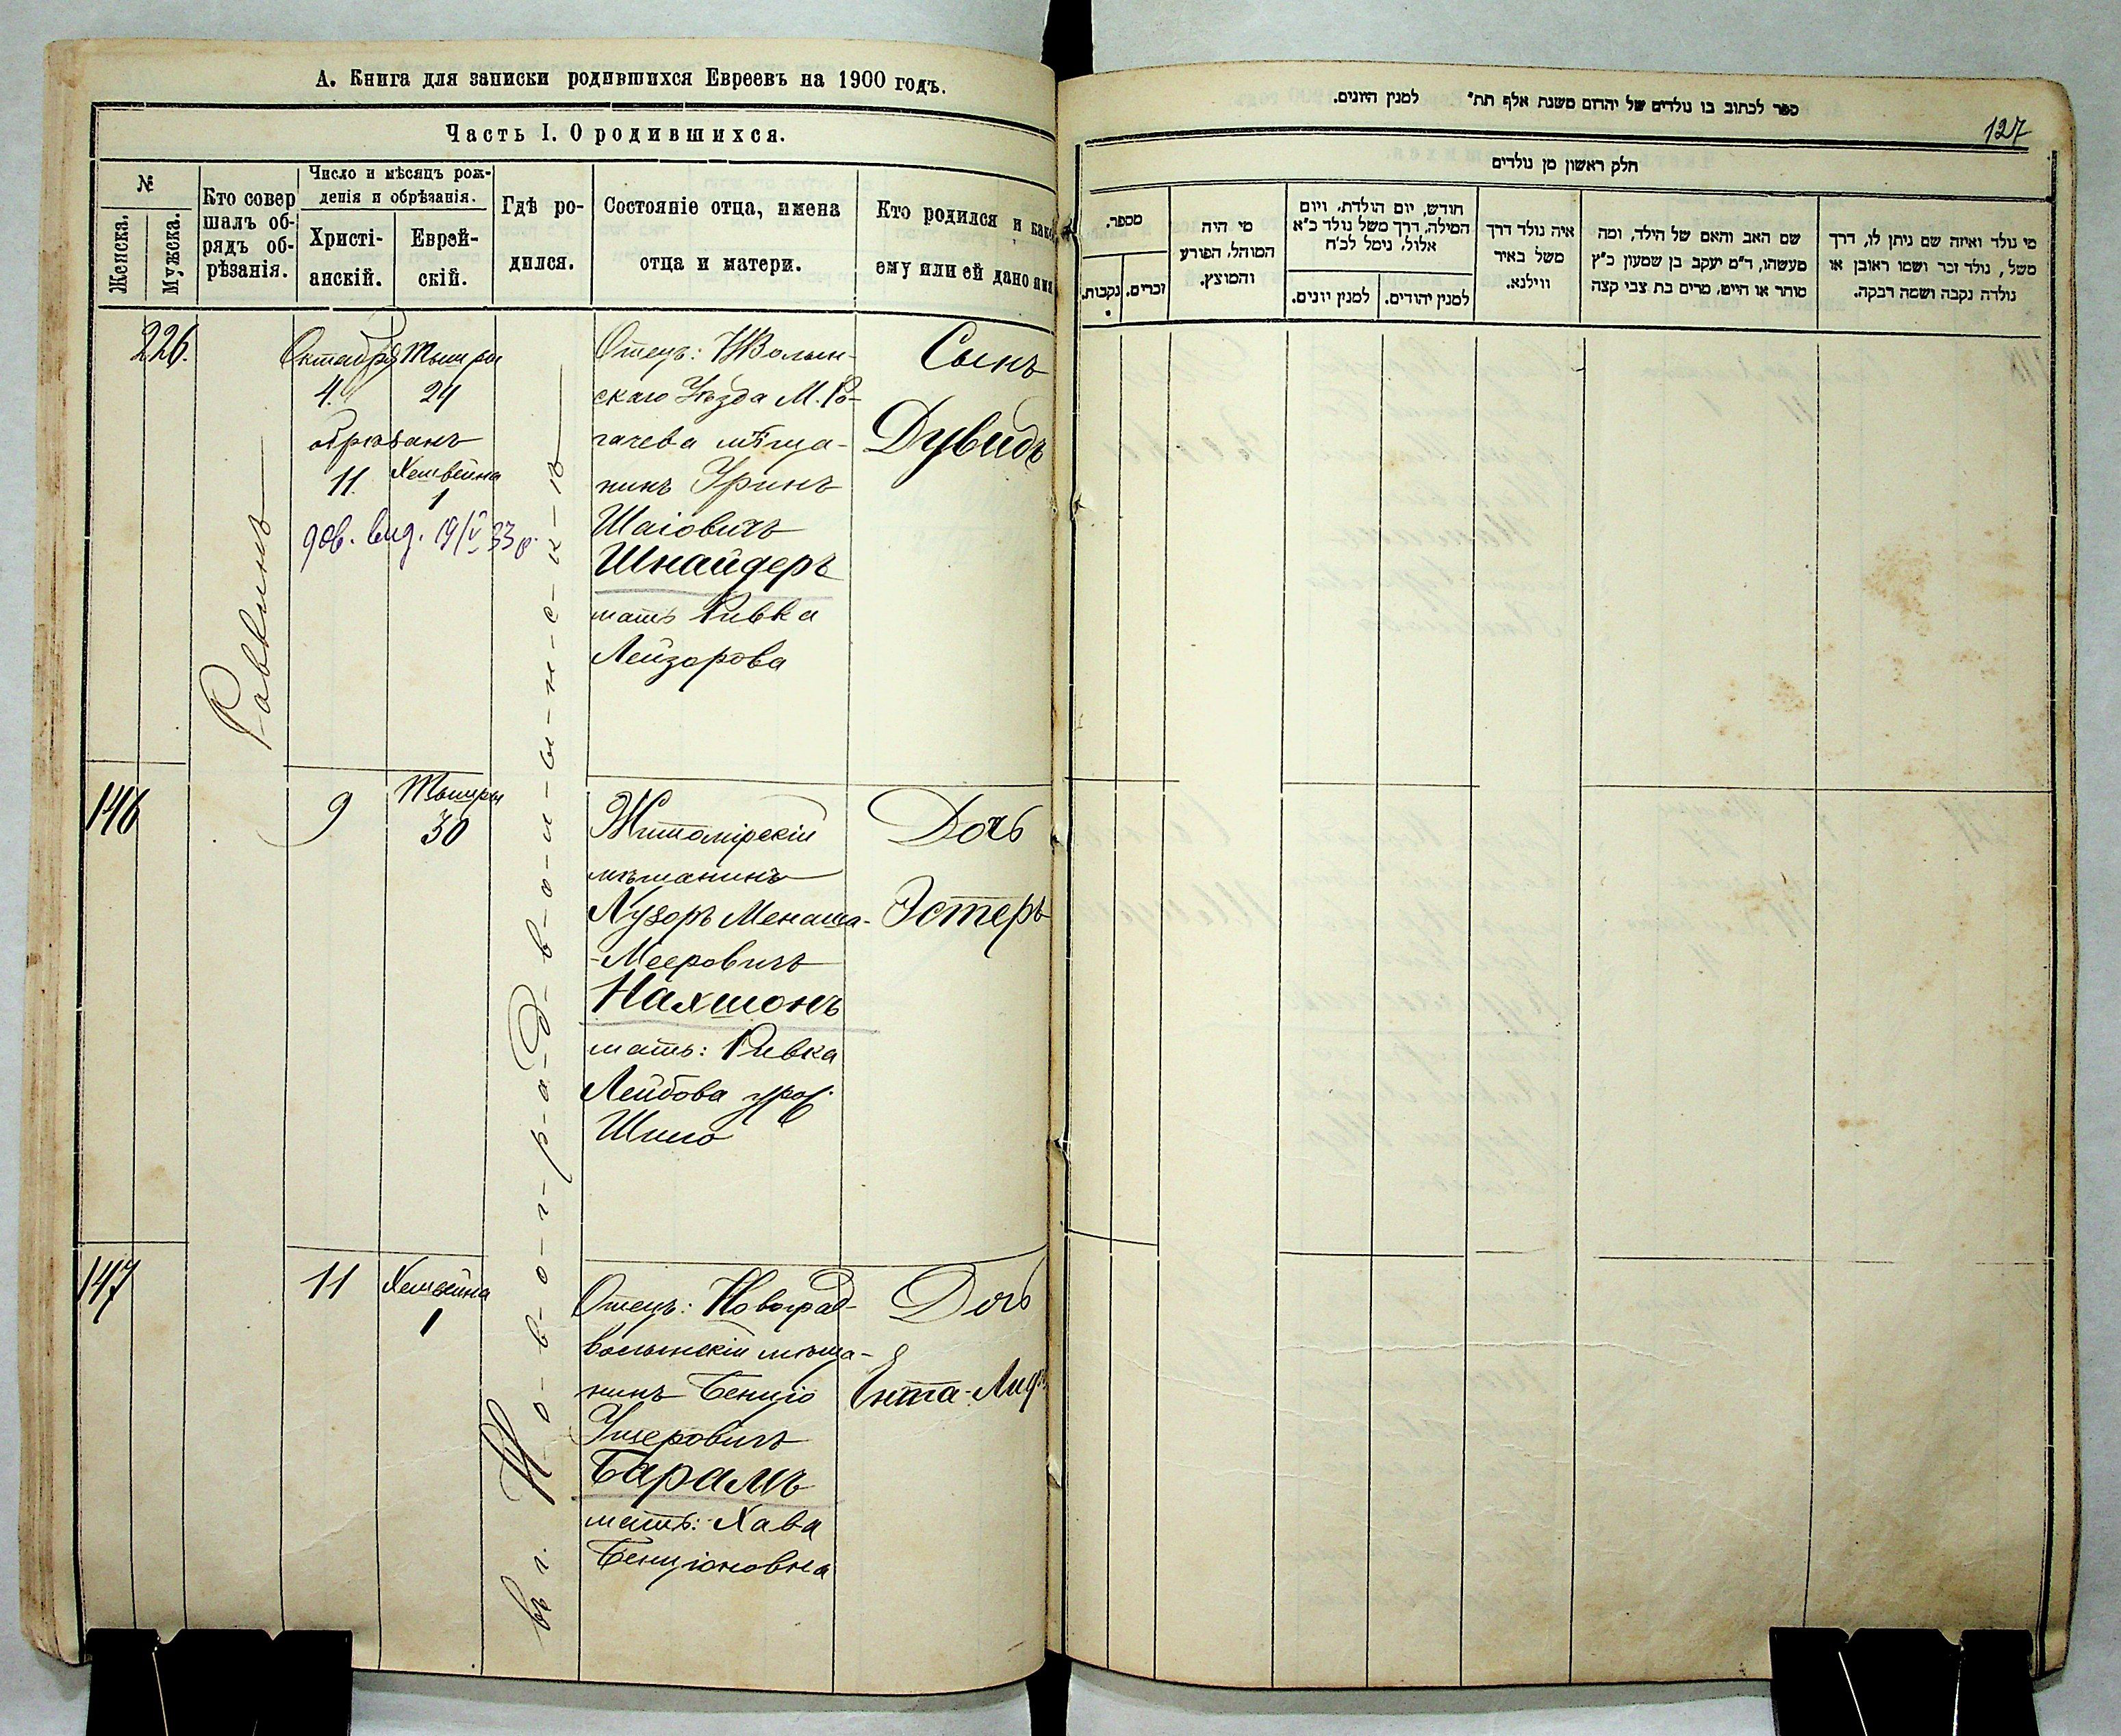 А. Книга для записки родившихся Евреевъ на 1900 годъ.
Часть I. О родившихся.
№
Женска.
Мужска.
Кто совер
шалъ об-
рядъ об-
рѣзанія.
Число и мѣсяцъ рож-
денія и обрѣзанія.
Христі-
анскій.
Еврей-
скій.
Гдѣ ро-
дился.
Состояніе отца, имена
отца и матери.
Кто родился и како
ему или ей дано имя
226.
Раввинъ
Октября
4.
обрѣзанъ
11.
Тышры
24
Хешвейна
1
дов. вид. 19/V 33 р.
въ г. Н-о-в-о-г-р-а-д-в-о-л-ы-н-с-к-ѣ
Отецъ: НВолын-
скаго Уѣзда М. Ро-
гачева мѣща-
нинъ Уринъ
Шаіовичъ
Шнайдеръ
мать Ривка
Лейзорова
Сынъ
Дувидъ
146
9
Тышры
30
Житомірскій
мѣщанинъ
Менаша-
-Мееровичъ
Нахшонъ
мать: Ривка
Лейбова урож.
Дочь
Эстеръ
147
11
Хешвейна
1
Отецъ: Новоград-
волынскій мѣща-
нинъ Бенціо
Ушеровичъ
Барамъ
мать: Хава
Бенціоновна
Дочь
Ента-
ספר לכתוב בו נולדים של יהדים משנת אלף תת״ למנין היונים.
127
חלק ראשון מן נולדים
מספר.
נקבות.
זכרים.
מי היה
המוהל, הפורע
והמוצץ.
חודש, יום הולדת, ויום
המילה, דרך משל נולד כ״א
אלול, נימל לכ״ח
למנין יונים.
למנין יהודים.
איה נולד דרך
משל באיר
ווילנא.
שם האב והאם של הילד, ומה
מעשהו, ד״מ יעקב בן שמעון כ״ץ
סוחר או חייט, מרים בת צבי קצה
מי נולד ואיזה שם ניתן לו, דרך
משל, נולד זכר ושמו ראובן או
נולדה נקבה ושמה רבקה.